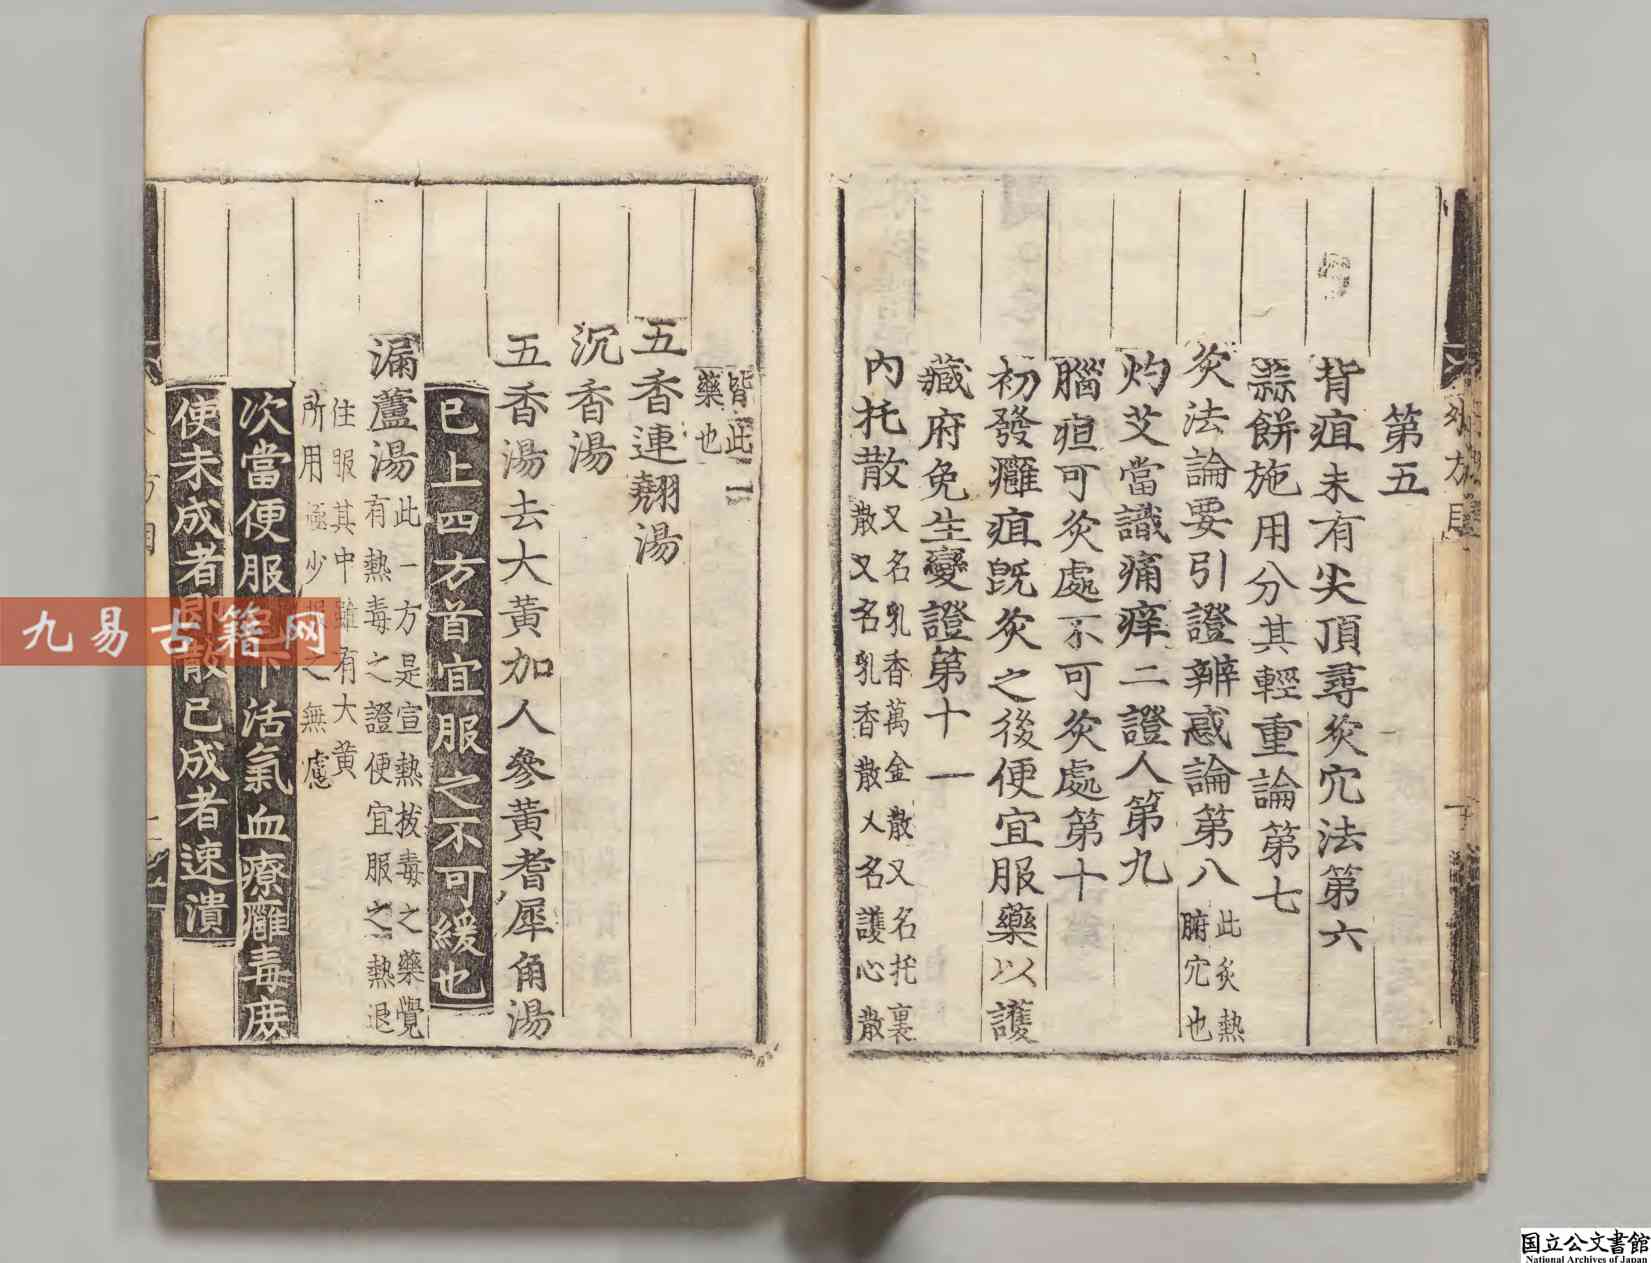 第五
背疽未有尖頂尋灸穴法第六
蒜餅施用分其輕重論第七
灸法論要引證辨惑論第八
此灸熱
腑穴也
灼艾當識痛痒二證人第九
腦疽可灸處不可灸處第十
初發癰疽旣灸之後便宜服藥以護
藏府免生變證第十一
內托散
又名乳香萬金散又名托裏
散又名乳香散又名護心散
皆此一
藥也
五香連翹湯
沉香湯
五香湯去大黃加人參黃耆犀角湯
已上四方首宜服之不可緩也
漏蘆湯
此一方是宣熱拔毒之藥覺
有熱毒之證便宜服之熱退
住服其中雖有大黃
所用極少服之無慮
次當便服已下活氣血療癰毒庶
使未成者即散已成者速潰
九易古籍网
国立公文書館
National Archives of Japan